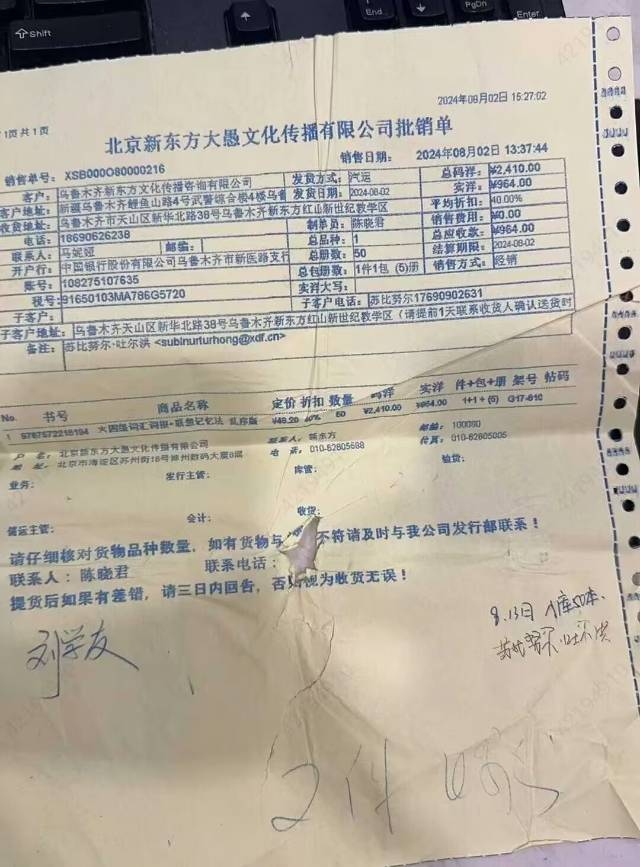 Shift
End
PgDn
Enter
2024年08月02日 15:27:02
1页共1页
北京新东方大愚文化传播有限公司批销单
销售单号: XSB000O80000216 销售日期: 2024年08月02日 13:37:44
客户: 乌鲁木齐新东方文化传播咨询有限公司 发货方式: 汽运 总码洋: ¥2,410.00
客户地址: 新疆乌鲁木齐鲤鱼山路4号武警综合楼4楼乌鲁 发货日期: 2024-08-02 实洋: ¥964.00
收货地址: 乌鲁木齐市天山区新华北路38号乌鲁木齐新东方红山新世纪教学区 平均折扣: 40.00%
电话: 18690626238 制单员: 陈晓君 销售费用: ¥0.00
联系人: 马妮娅 邮编: 总品种: 1 总应收款: ¥964.00
开户行: 中国银行股份有限公司乌鲁木齐市新医路支行 总册数: 50 结算期限: 2024-08-02
账号: 108275107635 总包册数: 1件1包 (5)册 销售方式: 经销
税号: 91650103MA786G5720 实洋大写:
子客户: 子客户电话: 苏比努尔17690902631
子客户地址: 乌鲁木齐天山区新华北路38号乌鲁木齐新东方红山新世纪教学区 (请提前1天联系收货人确认送货时
备注: 苏比努尔·吐尔洪 <subinurturhong@xdf.cn>
No. 书号 商品名称 定价 折扣 数量 码洋 实洋 件+包+册 架号 钻码
1 9787572218194 大四级词汇词根+联想记忆法 乱序版 ¥48.20 40% 50 ¥2,410.00 ¥964.00 1+1+(5) G17-610
户 名: 北京新东方大愚文化传播有限公司 联系人: 新东方 邮编: 100080
地 址: 北京市海淀区苏州街18号 电 话: 010-62605588 传真:
业务: 发行主管: 库管: 验货:
储运主管: 会计: 收货:
请仔细核对货物品种数量，如有货物与 不符请及时与我公司发行部联系！
联系人: 陈晓君 联系电话:
提货后如果有差错，请三日内回告，否 视为收货无误！
刘学友
8.13日 入库50本、
苏比努尔·吐尔洪
2件